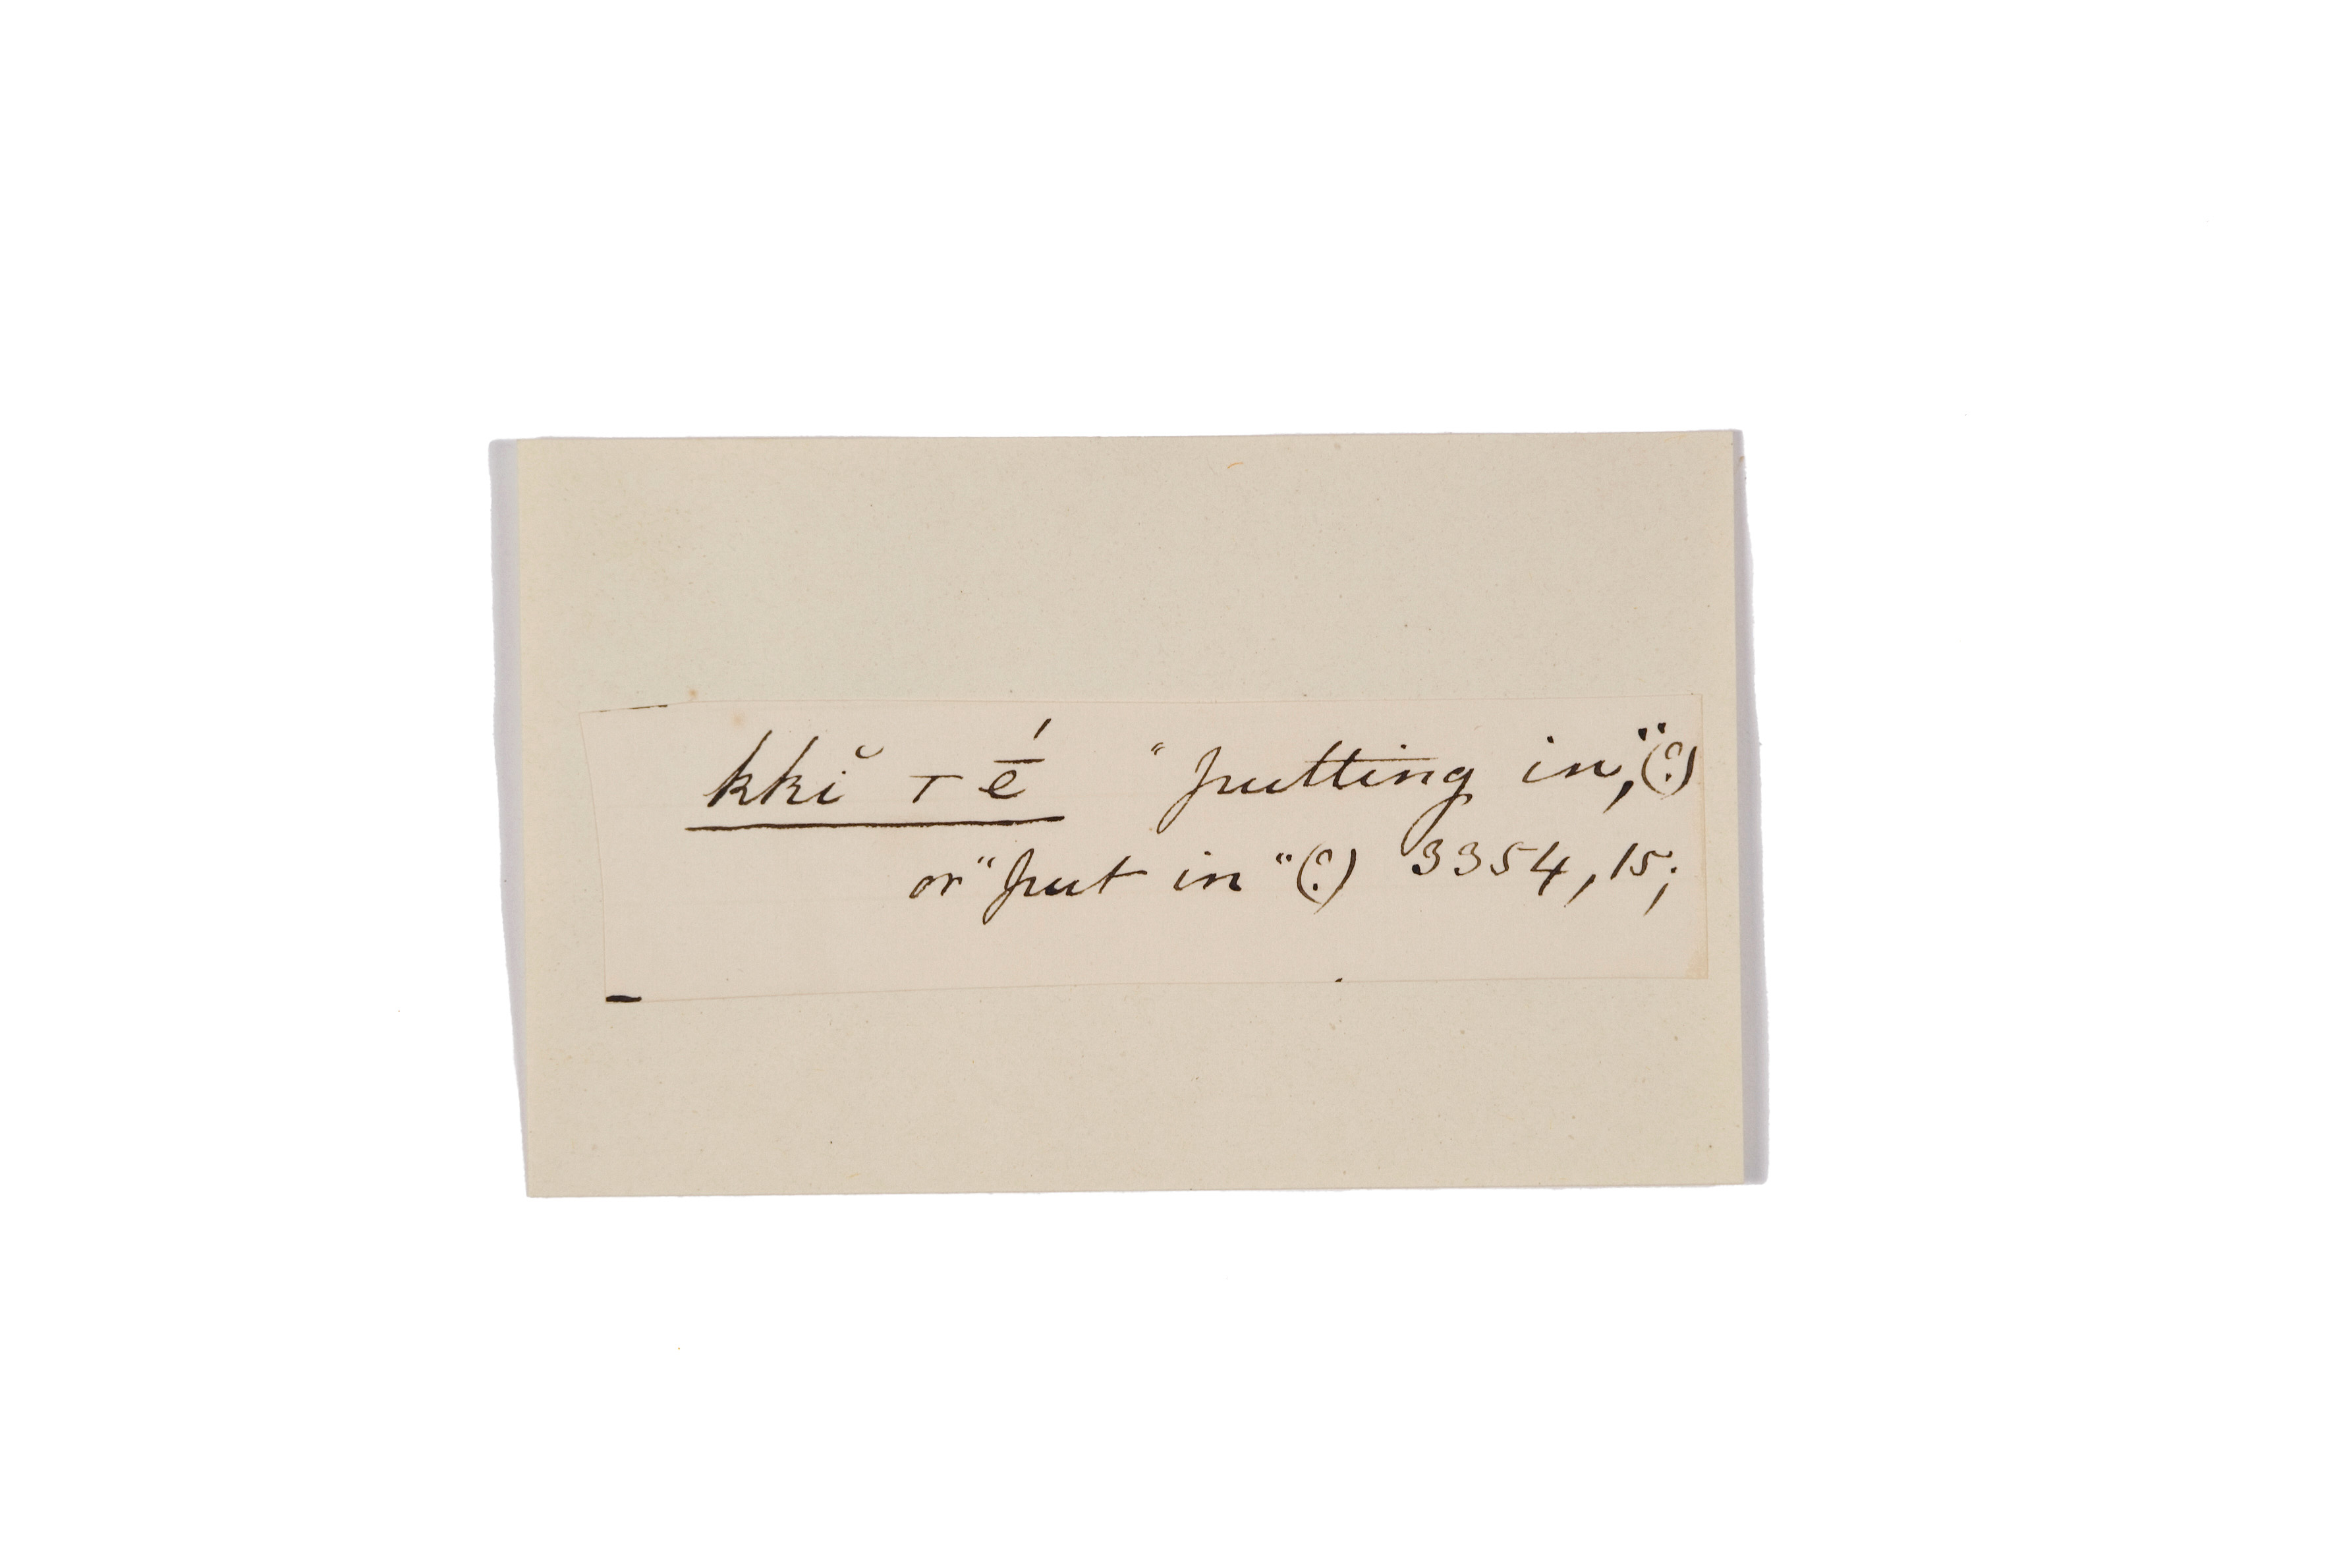 kkĭ ⊤ḗ "putting in,"(?)
or "put in"(?) 3354, 15;